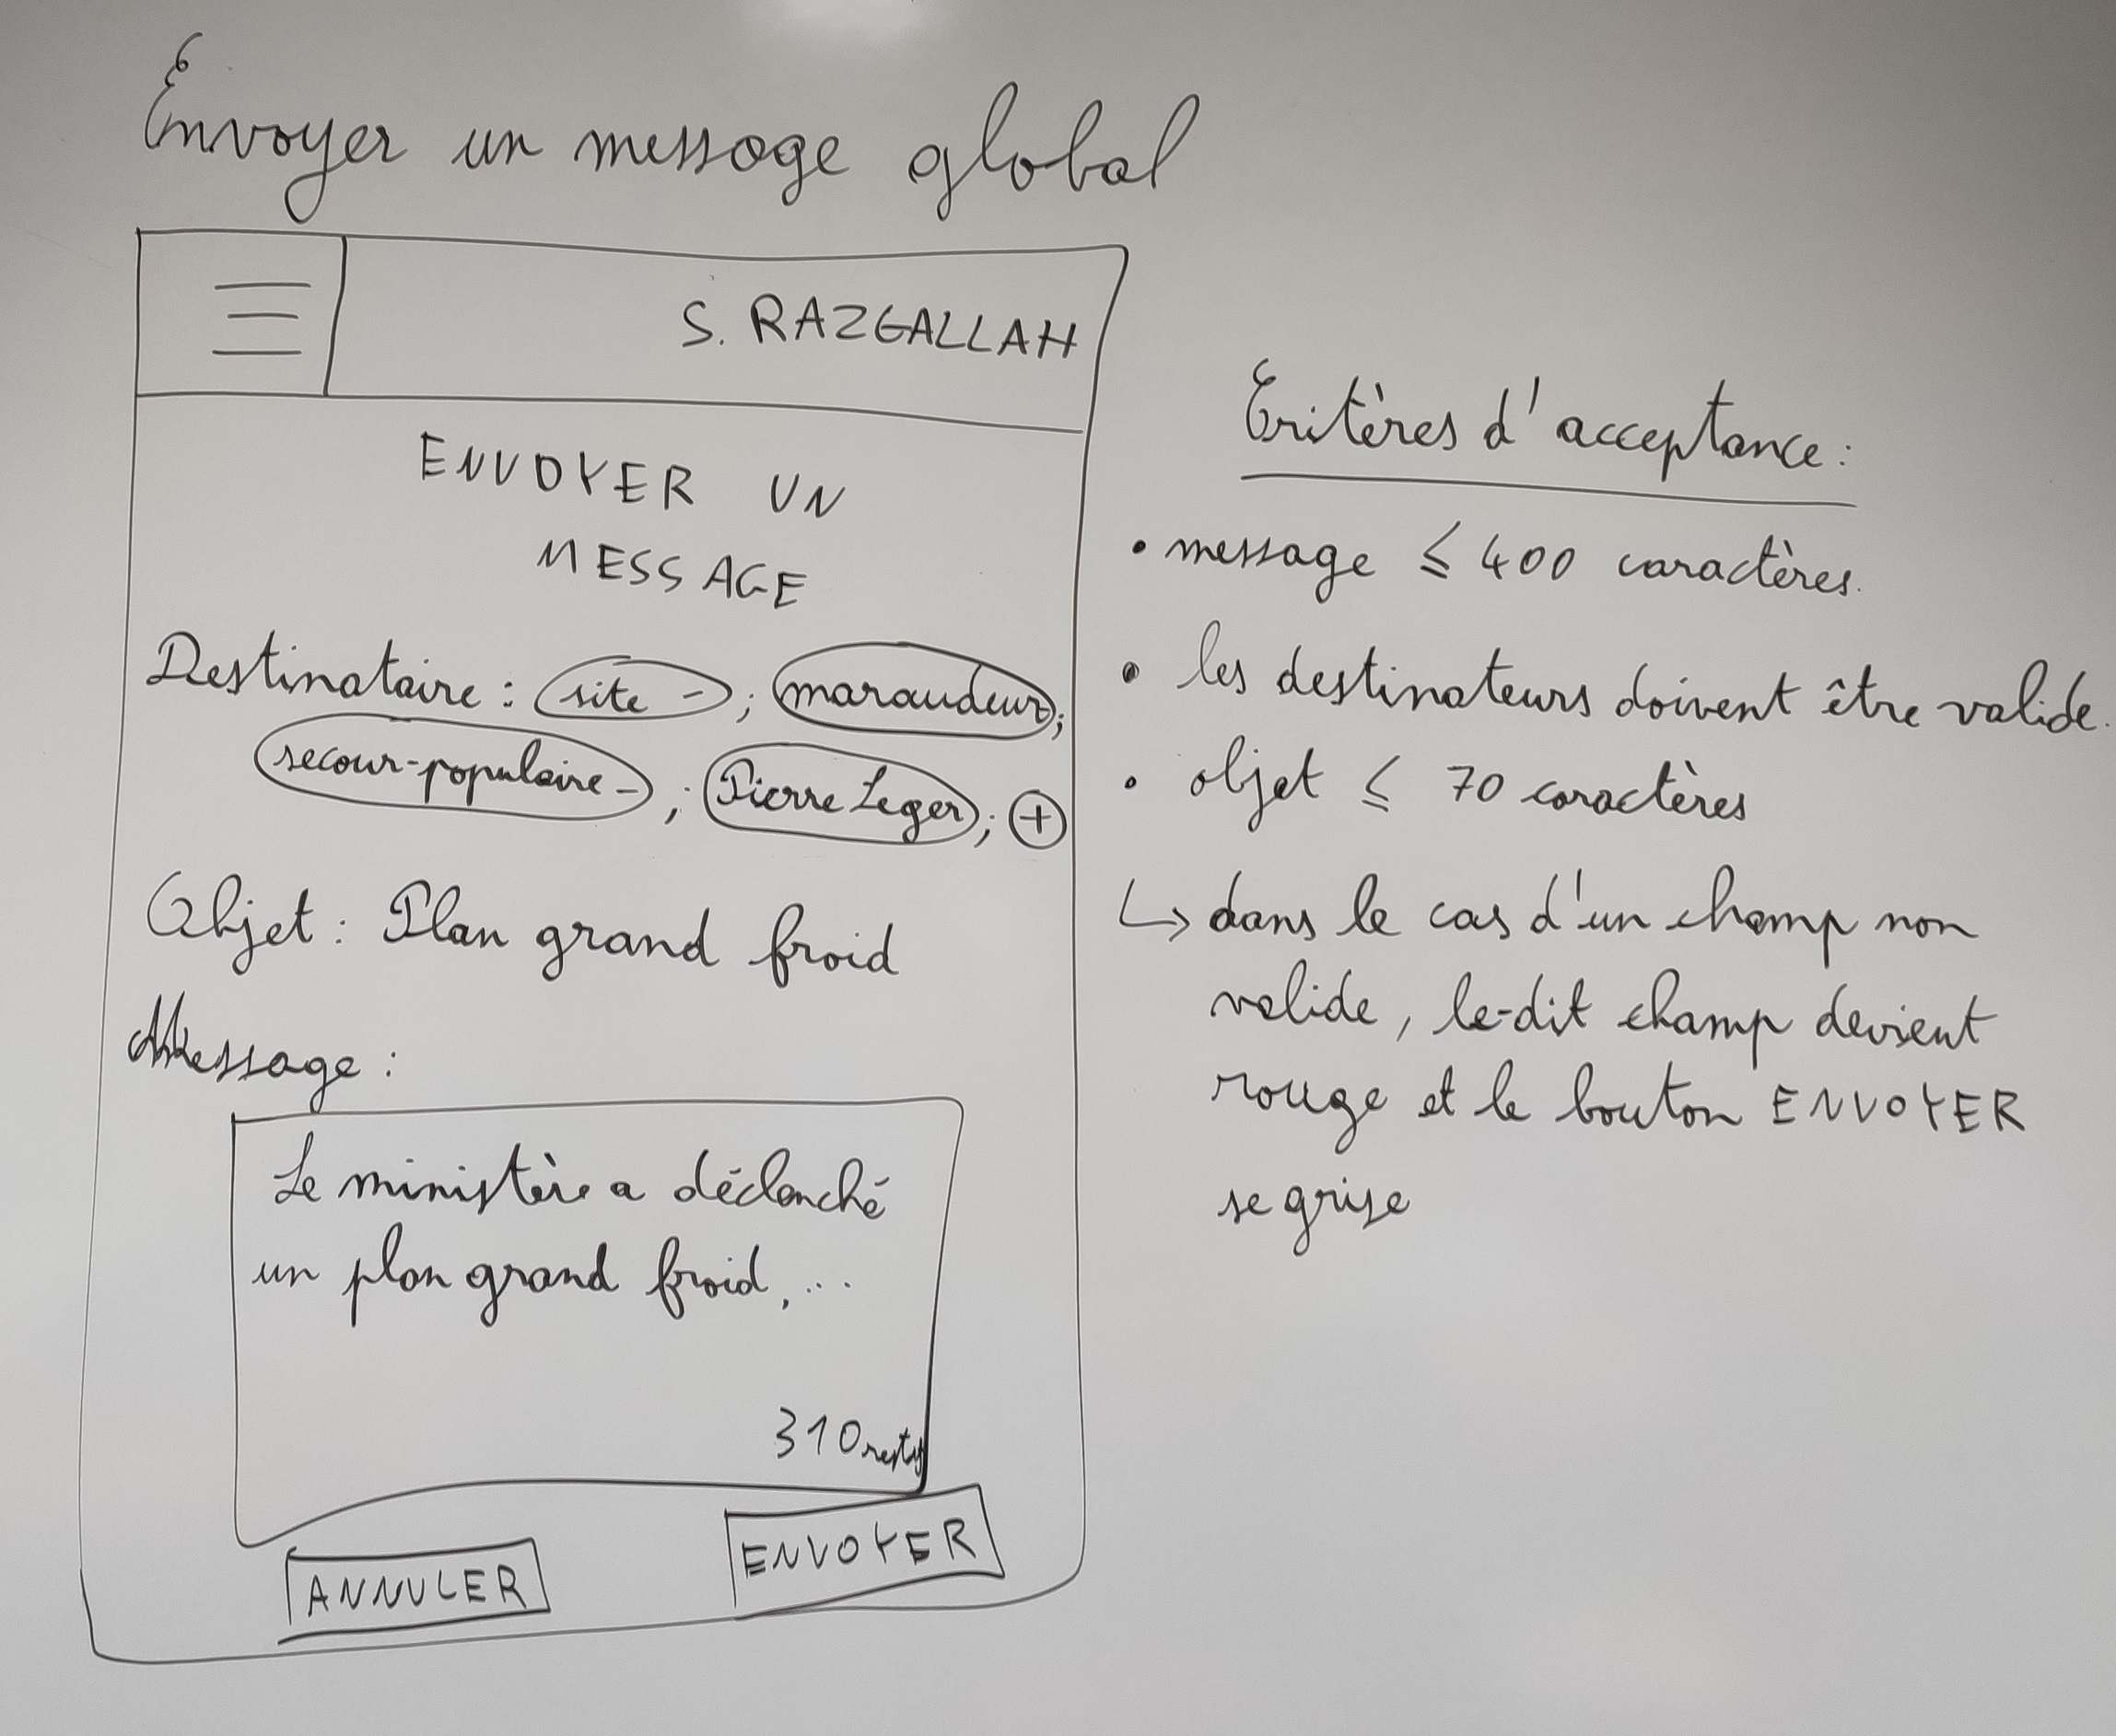 Envoyer un message global
S. RAZGALLAH
ENVOYER UN
MESSAGE
Destinataire : site - ; maraudeur ;
secour-populaire - ; Pierre Leger ; +
Objet : Plan grand froid
Message :
Le ministère a déclenché
un plan grand froid, ...
310
ANNULER
ENVOYER
Critères d'acceptance :
• message ≤ 400 caractères.
• les destinateurs doivent être valide.
• objet ≤ 70 caractères
↳ dans le cas d'un champ non
valide, le-dit champ devient
rouge et le bouton ENVOYER
se grise